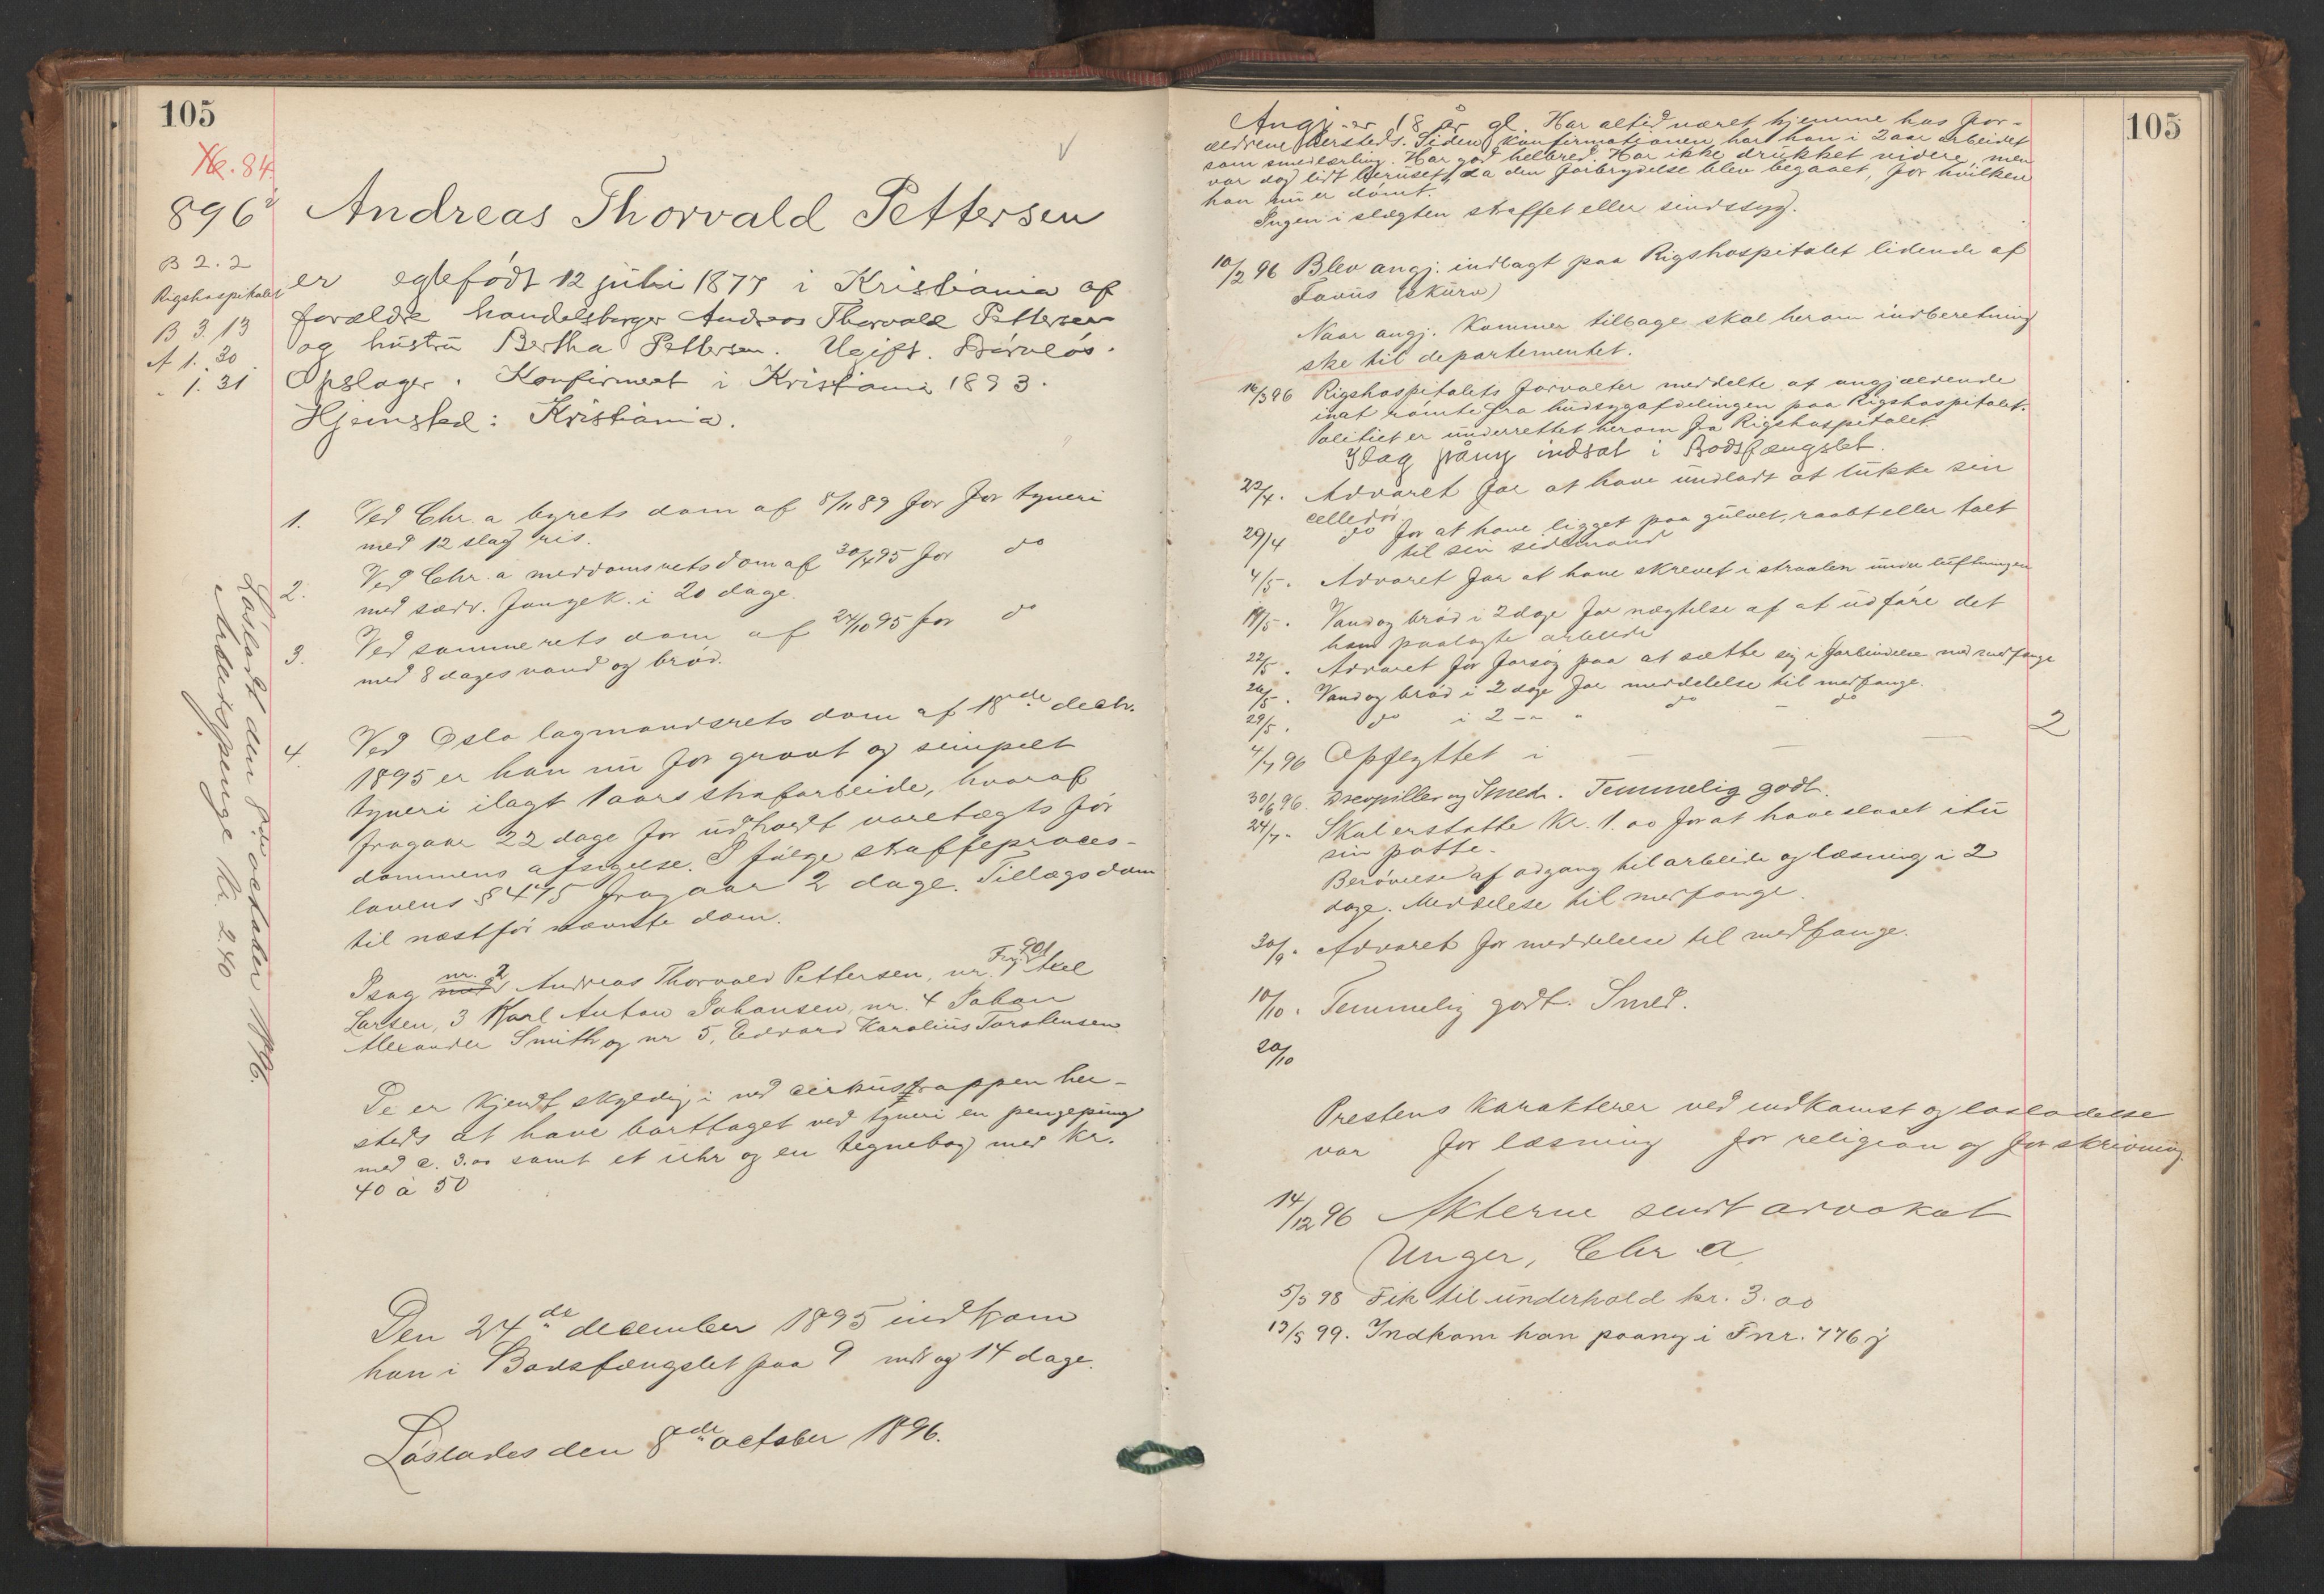 105
No. 84
896
Andreas Thorvald Pettersen
B 2.2
Rigshospitalet
B 3.13
A 1.30
" 1.31
er egtefødt 12 juli 1877 i Kristiania af
forældre handelsborger Andreas Thorvald Pettersen
og hustru Bertha Pettersen. Ugift. Barnløs.
Opslager. Konfirmert i Kristiania 1893.
Hjemsted: Kristiania.
1. Ved Chr.a byrets dom af 8/11 89 for for tyveri
med 12 slag ris.
2. Ved Chr.a meddomsrets dom af 30/4 95 for do
med sædv. fangek. i 20 dage.
3. Ved samme rets dom af 24/10 95 for do
med 8 dages vand og brød.
4. Ved Oslo lagmandsrets dom af 18de decbr.
1895 er han nu for grovt og simpelt
tyveri ilagt 1 aars strafarbeide, hvoraf
fragaar 22 dage for udholdt varetægts før
dommens afsigelse. I følge straffeproces-
lovens § 475 fragaar 2 dage. Tillægsdom
til næstfør nævnte dom.
I sag nr. 2 Andreas Thorvald Pettersen, nr. 1 Axel
Fnr. 901
Larsen, 3 Karl Anton Johansen, nr. 4 Johan
Alexander Smith og nr 5, Edvard Karolius Torstensen
De er kjendt skyldig i ved cirkustrappen her-
steds at have borttaget ved tyveri en pengepung
med c. 3.00 samt et uhr og en tegnebog med kr.
40 à 50
Den 24de december 1895 indkom
han i Bodsfængslet paa 9 mdr og 14 dage.
Løslades den 8de october 1896.
Løsladt den 8de october 1896.
Arbeidspenge Kr. 2.40
105
Angj. er 18 år gl. Har altid været hjemme hos for-
ældrene hersteds. Siden konfirmationen har han i 2 aar arbeidet
som smedlærling. Har god helbred. Har ikke drukket videre, men
var dog lidt beruset, da den forbrydelse blev begaaet, for hvilken
han nu er dømt.
Ingen i slægten straffet eller sindssyg.
10/2 96 Blev angj. indlagt paa Rigshospitalet lidende af
Favus (skurv)
Naar angj. kommer tilbage skal herom indberetning
ske til departementet.
16/3 96 Rigshospitalets forvalter meddelte at angjældende
inat rømte fra hudsygafdelingen paa Rigshospitalet.
Politiet er underrettet herom fra Rigshospitalet.
Idag påny indsat i Bodsfængslet.
22/4. Advaret for at have undladt at lukke sin
celledør
29/4 do for at have ligget paa gulvet, raabt eller talt
til sin sidemand
4/5. Advaret for at have skrevet i straalen under luftningen
19/5. Vand og brød i 2 dage for nægtelse af at udføre det
ham paalagte arbeide
22/5. Advaret for forsøg paa at sætte sig i forbindelse med medfange
26/5. Vand og brød i 2 dage for meddelelse til medfange.
29/5. do i 2 - " do - do
2
4/7 96 Opflyttet i
30/6 96. Drevpiller og Smed. Temmelig godt.
24/7. Skal erstatte Kr. 1.00 for at have slaaet itu
sin potte.
Berøvelse af adgang til arbeide og læsning i 2
dage. Meddelelse til medfange.
30/9. Advaret for meddelelse til medfange.
10/10. Temmelig godt. Smed.
20/10
Prestens karakterer ved indkomst og løsladelse
var for læsning for religion og for skrivning
14/12 96 Akterne sendt advokat
Unger, Chr a.
5/5 98 Fik til underhold kr. 3.00
13/5 99. Indkom han paany i Fnr. 776 j